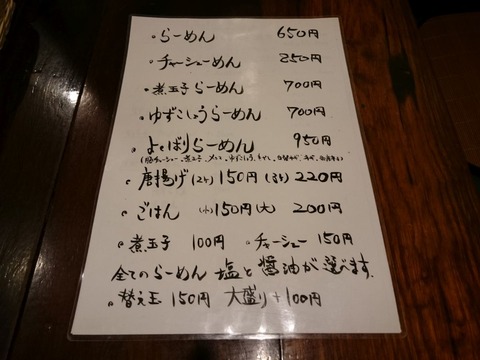 ・らーめん 650円
・チャーシューめん 850円
・煮玉子らーめん 700円
・ゆずこしょうらーめん 700円
・よくばりらーめん 950円
・唐揚げ(2ケ)150円(3ケ)220円
・ごはん (小)150円(大)200円
・煮玉子 100円 ・チャーシュー 150円
全てのらーめん 塩と醤油が選べます。
・替え玉 150円 大盛り+100円